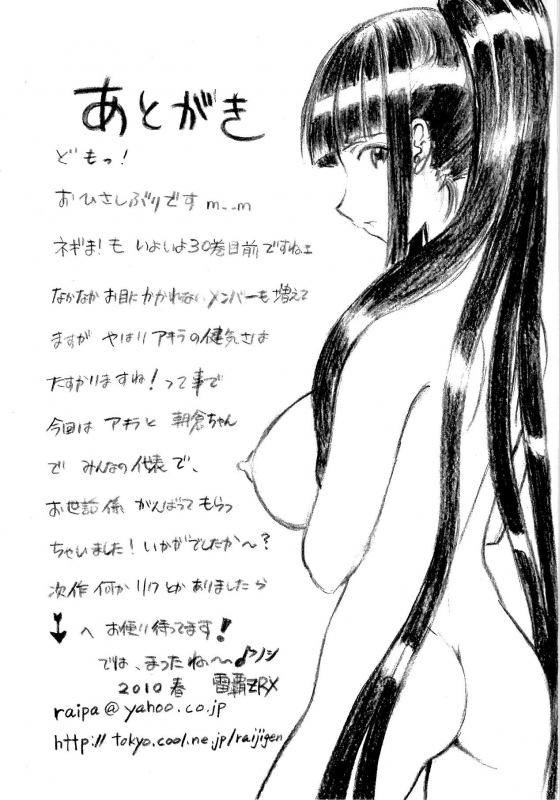 あとがき
どもっ!
おひさしぶりです m--m
ネギま!も いよいよ30巻目前ですねェ
なかなか お目にかかれないメンバーも 増えて
ますが やはり アキラの健気さは
たすかりますね!って事で
今回は アキラと 朝倉ちゃん
で みんなの代表で、
お世話係 がんばって もらっ
ちゃいました!いかがでしたか〜?
次作 何か リクとか ありましたら
↓へ お便り待ってます!
では、まったね〜〜♪ノシ
2010 春 雷覇ZRX
raipa@yahoo.co.jp
http://tokyo.cool.ne.jp/raijigen